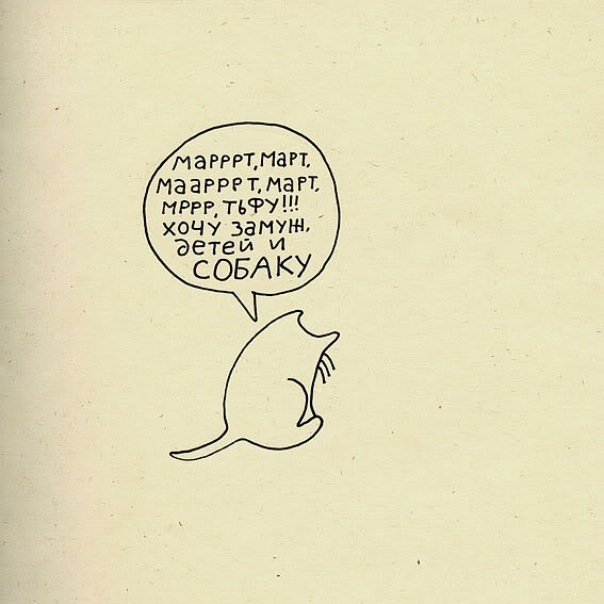 МАРРРТ, МАРТ,
МААРРРТ, МАРТ,
МРРР, ТЬФУ!!!
ХОЧУ ЗАМУЖ,
детей и
СОБАКУ